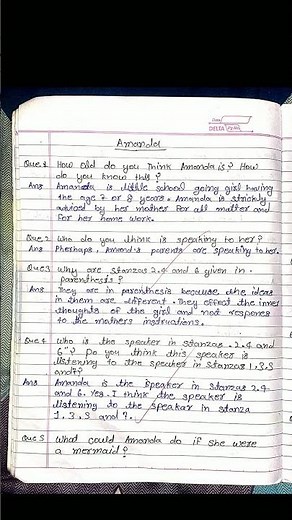 Date
DELTA
Amanda
Que.1 How old do you think Amanda is? How
do you know this?
Ans Amanda is little school going girl having
the age 7 or 8 years. Amanda is strickly
adviced by her mother for all matter and
For her home work.
Que.2 Who do you think is speaking to her?
Ans Pherhaps, Amand's parents are speaking to her.
Que3 Why are stanzas 2.4 and 6 given in
paranthesis?
Ans They are in parenthesis because the ideas
in them are different. They effect the inner
thoughts of the girl and not respones
to the mothers instructions.
Que 4 Who is the speaker in stanzas .2.4 and
6"? Do you think this speaker is
listening to the speaker in Stanzas 1.3.5
and7?
Ans Amanda is the Speaker in Stanzas 2.4
and 6. Yes. I think the speaker is
listening to the speakar in stanza
1.3.5 and 7.
Que 5 What could Amanda do if she were
a mermaid?